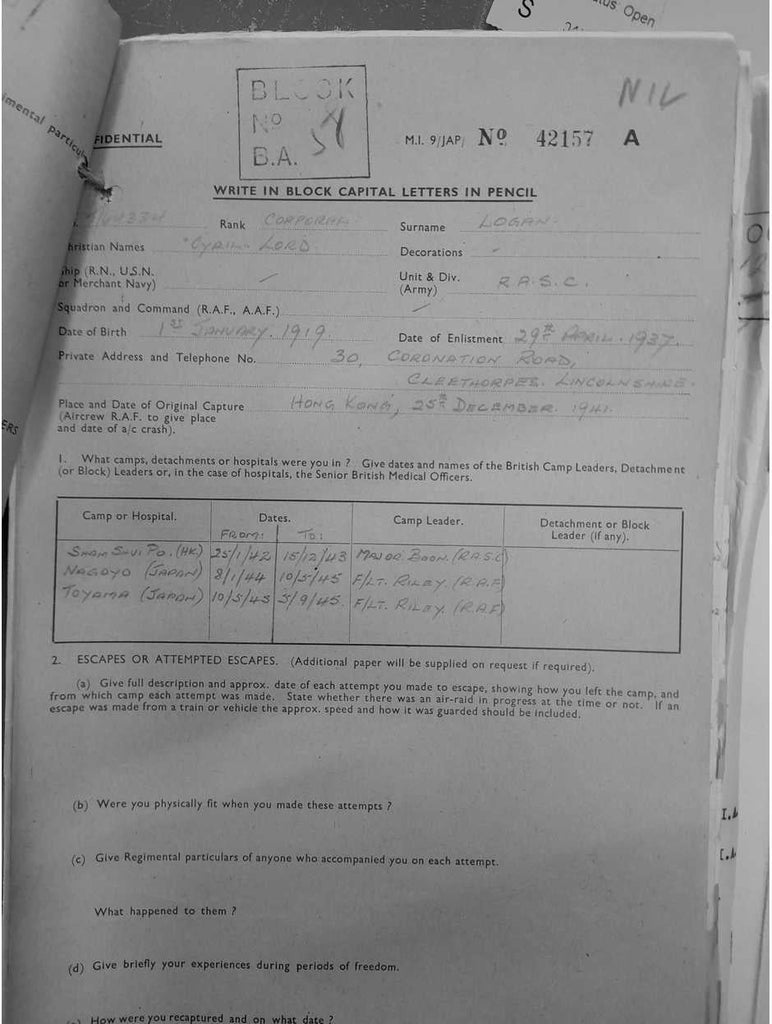 S
us Open
imental Particul
FIDENTIAL
BLOCK
No
B.A.
NIL
M.I. 9/JAP/ No. 42157 A
WRITE IN BLOCK CAPITAL LETTERS IN PENCIL
Rank CORPORAL Surname LOGAN
hristian Names CYRIL LORD Decorations -
hip (R.N., U.S.N.
or Merchant Navy) / Unit & Div. (Army) R.A.S.C.
Squadron and Command (R.A.F., A.A.F.) /
Date of Birth 1ST JANUARY. 1919. Date of Enlistment 29TH APRIL. 1937.
Private Address and Telephone No. 30, CORONATION ROAD,
CLEETHORPES. LINCOLNSHIRE.
Place and Date of Original Capture HONG KONG, 25TH DECEMBER. 1941.
(Aircrew R.A.F. to give place
and date of a/c crash).
ERS
1. What camps, detachments or hospitals were you in ? Give dates and names of the British Camp Leaders, Detachment
(or Block) Leaders or, in the case of hospitals, the Senior British Medical Officers.
Camp or Hospital. Dates. Camp Leader. Detachment or Block Leader (if any).
FROM: TO:
SHAM SHUI PO. (HK) 25/1/42 15/12/43 MAJOR BOON. (R.A.S.C)
NAGOYO (JAPAN) 8/1/44 10/5/45 F/LT. RILEY. (R.A.F)
TOYAMA (JAPAN) 10/5/45 5/9/45. F/LT. RILEY. (R.A.F)
2. ESCAPES OR ATTEMPTED ESCAPES. (Additional paper will be supplied on request if required).
(a) Give full description and approx. date of each attempt you made to escape, showing how you left the camp, and
from which camp each attempt was made. State whether there was an air-raid in progress at the time or not. If an
escape was made from a train or vehicle the approx. speed and how it was guarded should be included.
(b) Were you physically fit when you made these attempts ?
(c) Give Regimental particulars of anyone who accompanied you on each attempt.
What happened to them ?
(d) Give briefly your experiences during periods of freedom.
How were you recaptured and on what date ?